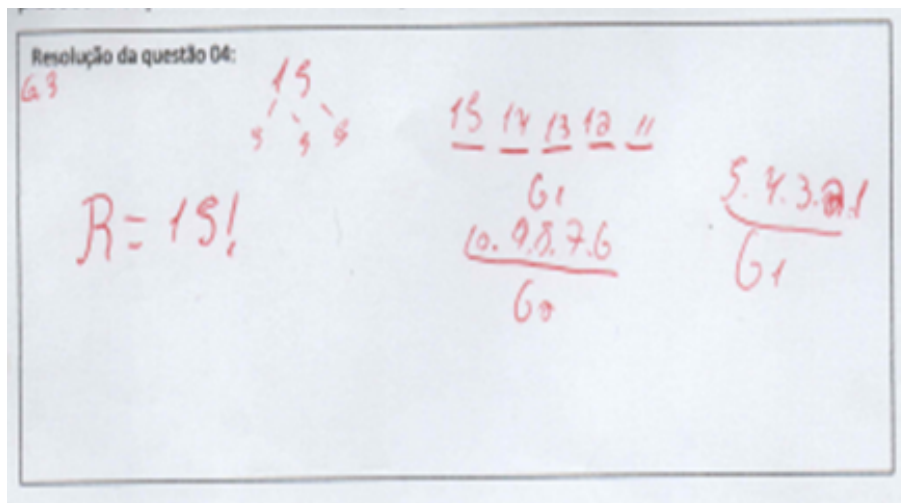 Resolução da questão 04:
G3
15
5 5 5
R = 15!
15 14 13 12 11
G1
10.9.8.7.6
G2
5.4.3.2.1
G1